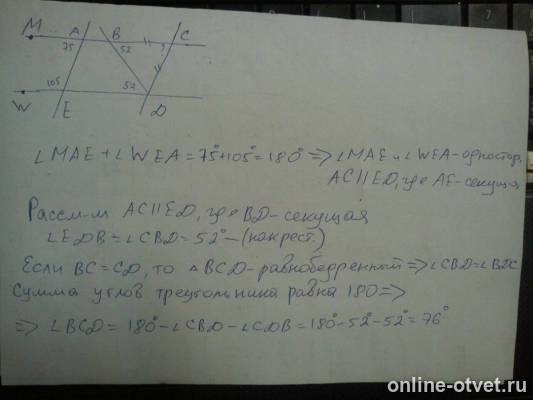 M A B C
75 52 ?
105 52
W E D
∠MAE + ∠WEA = 75°+105° = 180° => ∠MAE и ∠WEA - одностор.
AC||ED, где AE - секущая
Рассм-м AC||ED, где BD - секущая
∠EDB = ∠CBD = 52° - (накрест.)
Если BC = CD, то △BCD - равнобедренный => ∠CBD = ∠BDC
Сумма углов треугольника равна 180 =>
=> ∠BCD = 180° - ∠CBD - ∠CDB = 180° - 52° - 52° = 76°
online-otvet.ru